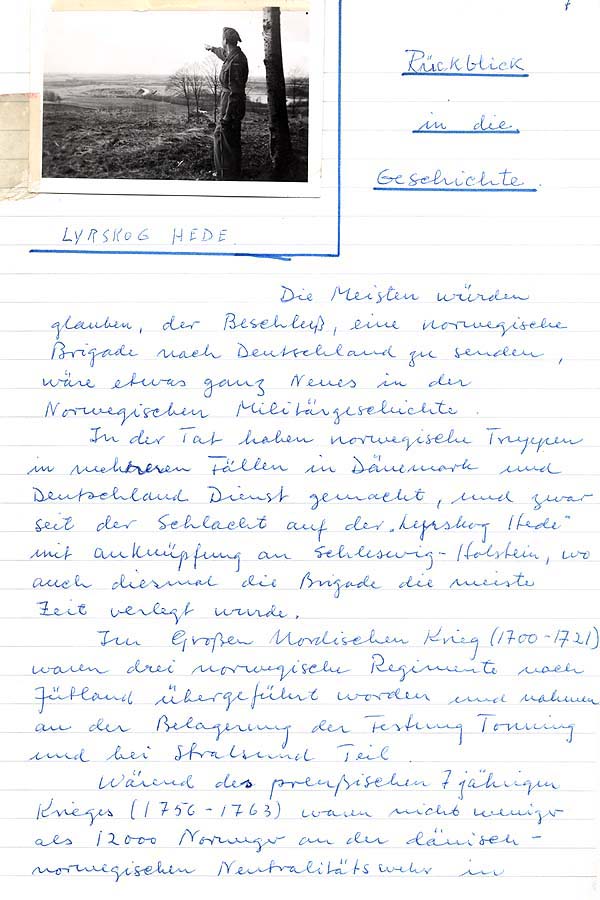 Rückblick
in die
Geschichte.
LYRSKOG HEDE.
Die Meisten würden
glauben, der Beschluß, eine norwegische
Brigade nach Deutschland zu senden,
wäre etwas ganz Neues in der
Norwegischen Militärgeschichte.
In der Tat haben norwegische Truppen
in mehreren Fällen in Dänemark und
Deutschland Dienst gemacht, und zwar
seit der Schlacht auf der „Lyrskog Hede"
mit anknüpfung an Schleswig-Holstein, wo
auch diesmal die Brigade die meiste
Zeit verlegt wurde.
Im Großen Nordischen Krieg (1700-1721)
waren drei norwegische Regimente nach
Jütland übergeführt worden und nahmen
an der Belagerung der Festung Tonning
und bei Stralsund Teil.
Wärend des preußischen 7 jährigen
Krieges (1756-1763) waren nicht weniger
als 12000 Norweger an der dänisch-
norwegischen Neutralitätswehr in